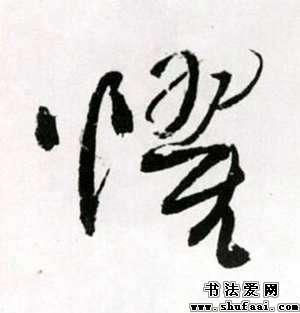 懼
书法爱网
www.shufaai.com